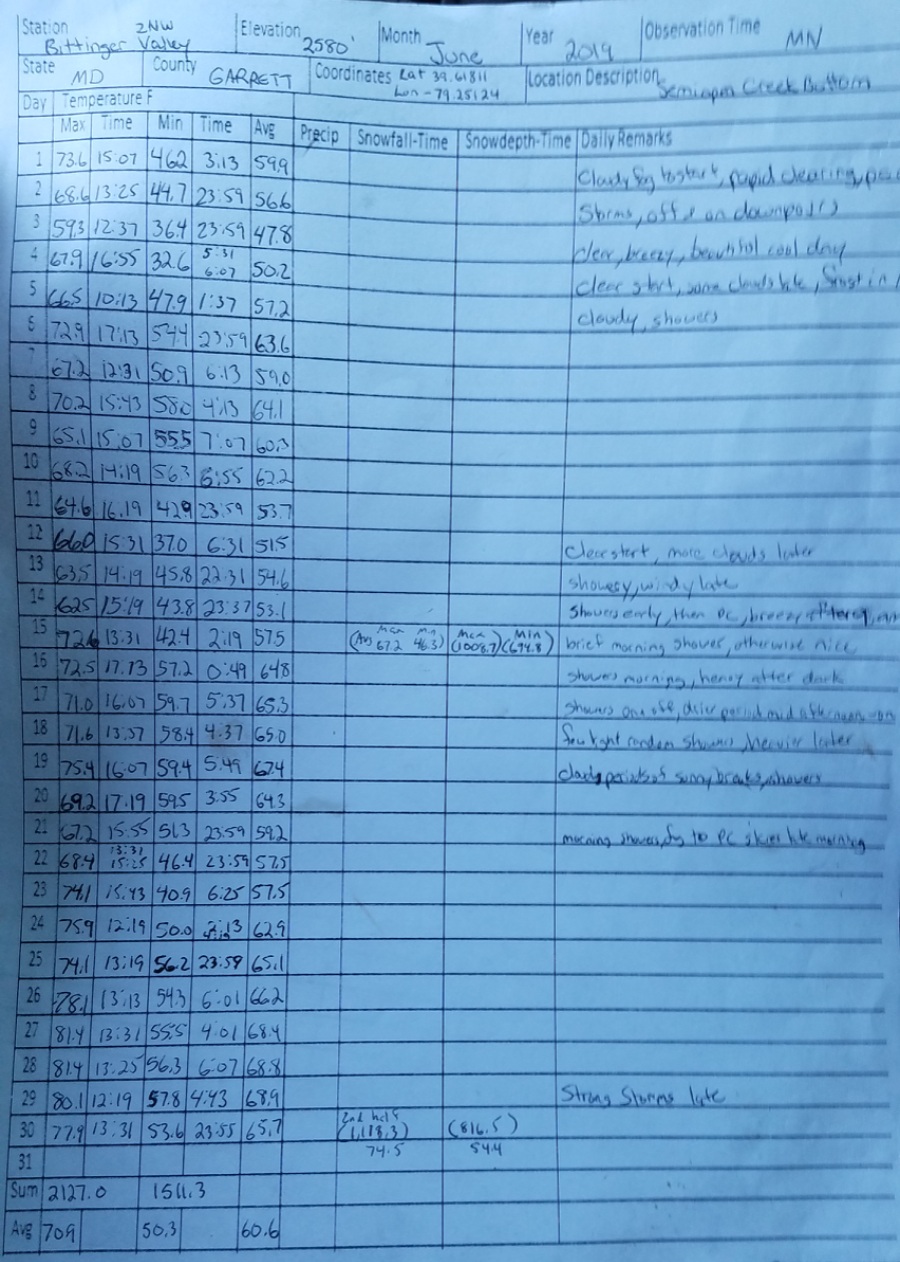 Station 2NW Elevation Month Year Observation Time
Bittinger Valley 2580' June 2019 MN
State MD County GARRETT Coordinates Lat 39.61811 Location Description Semiopen Creek Bottom
Lon -79.25124
Day Temperature F
Max Time Min Time Avg Precip Snowfall-Time Snowdepth-Time Daily Remarks
1 73.6 15:07 46.2 3:13 59.9 Cloudy fog to start, rapid clearing,
2 68.6 13:25 44.7 23:59 56.6 Storms, off & on downpours
3 59.3 12:37 36.4 23:59 47.8 clear, breezy, beautiful cool day
4 67.9 16:55 32.6 5:31 6:07 50.2 clear start, some clouds late, in
5 66.5 10:13 47.9 1:37 57.2 cloudy, showers
6 72.9 17:13 54.4 23:59 63.6
7 67.2 12:31 50.9 6:13 59.0
8 70.2 15:43 58.0 4:13 64.1
9 65.1 15:07 55.5 7:07 60.3
10 68.2 14:19 56.3 6:55 62.2
11 64.6 16:19 42.9 23:59 53.7
12 66.0 15:31 37.0 6:31 51.5 clear start, more clouds later
13 63.5 14:19 45.8 22:31 54.6 showery, windy late
14 62.5 15:19 43.8 23:37 53.1 Showers early, then PC, breezy afternoon
15 72.6 13:31 42.4 2:19 57.5 (Avg Max 67.2 Min 46.3) (Max 1008.7) (Min 694.8) brief morning shower, otherwise nice
16 72.5 17:13 57.2 0:49 64.8 showers morning, heavy after dark
17 71.0 16:07 59.7 5:37 65.3 showers on & off, drier period mid afternoon
18 71.6 13:37 58.4 4:37 65.0 few light random showers, heavier later
19 75.4 16:07 59.4 5:49 67.4 cloudy periods of sunny breaks, showers
20 69.2 17:19 59.5 3:55 64.3
21 67.2 15:55 51.3 23:59 59.2 morning showers, fog to PC skies late morning
22 68.4 13:31 15:25 46.4 23:59 57.5
23 74.1 15:43 40.9 6:25 57.5
24 75.9 12:19 50.0 62.9
25 74.1 13:19 56.2 23:59 65.1
26 78.1 13:13 54.3 6:01 66.2
27 81.4 13:31 55.5 4:01 68.4
28 81.4 13:25 56.3 6:07 68.8
29 80.1 12:19 57.8 4:43 68.9 Strong Storms late
30 77.9 13:31 53.6 23:55 65.7 2nd half (1,118.3) (816.5)
31 74.5 54.4
Sum 2127.0 1511.3
Avg 70.9 50.3 60.6